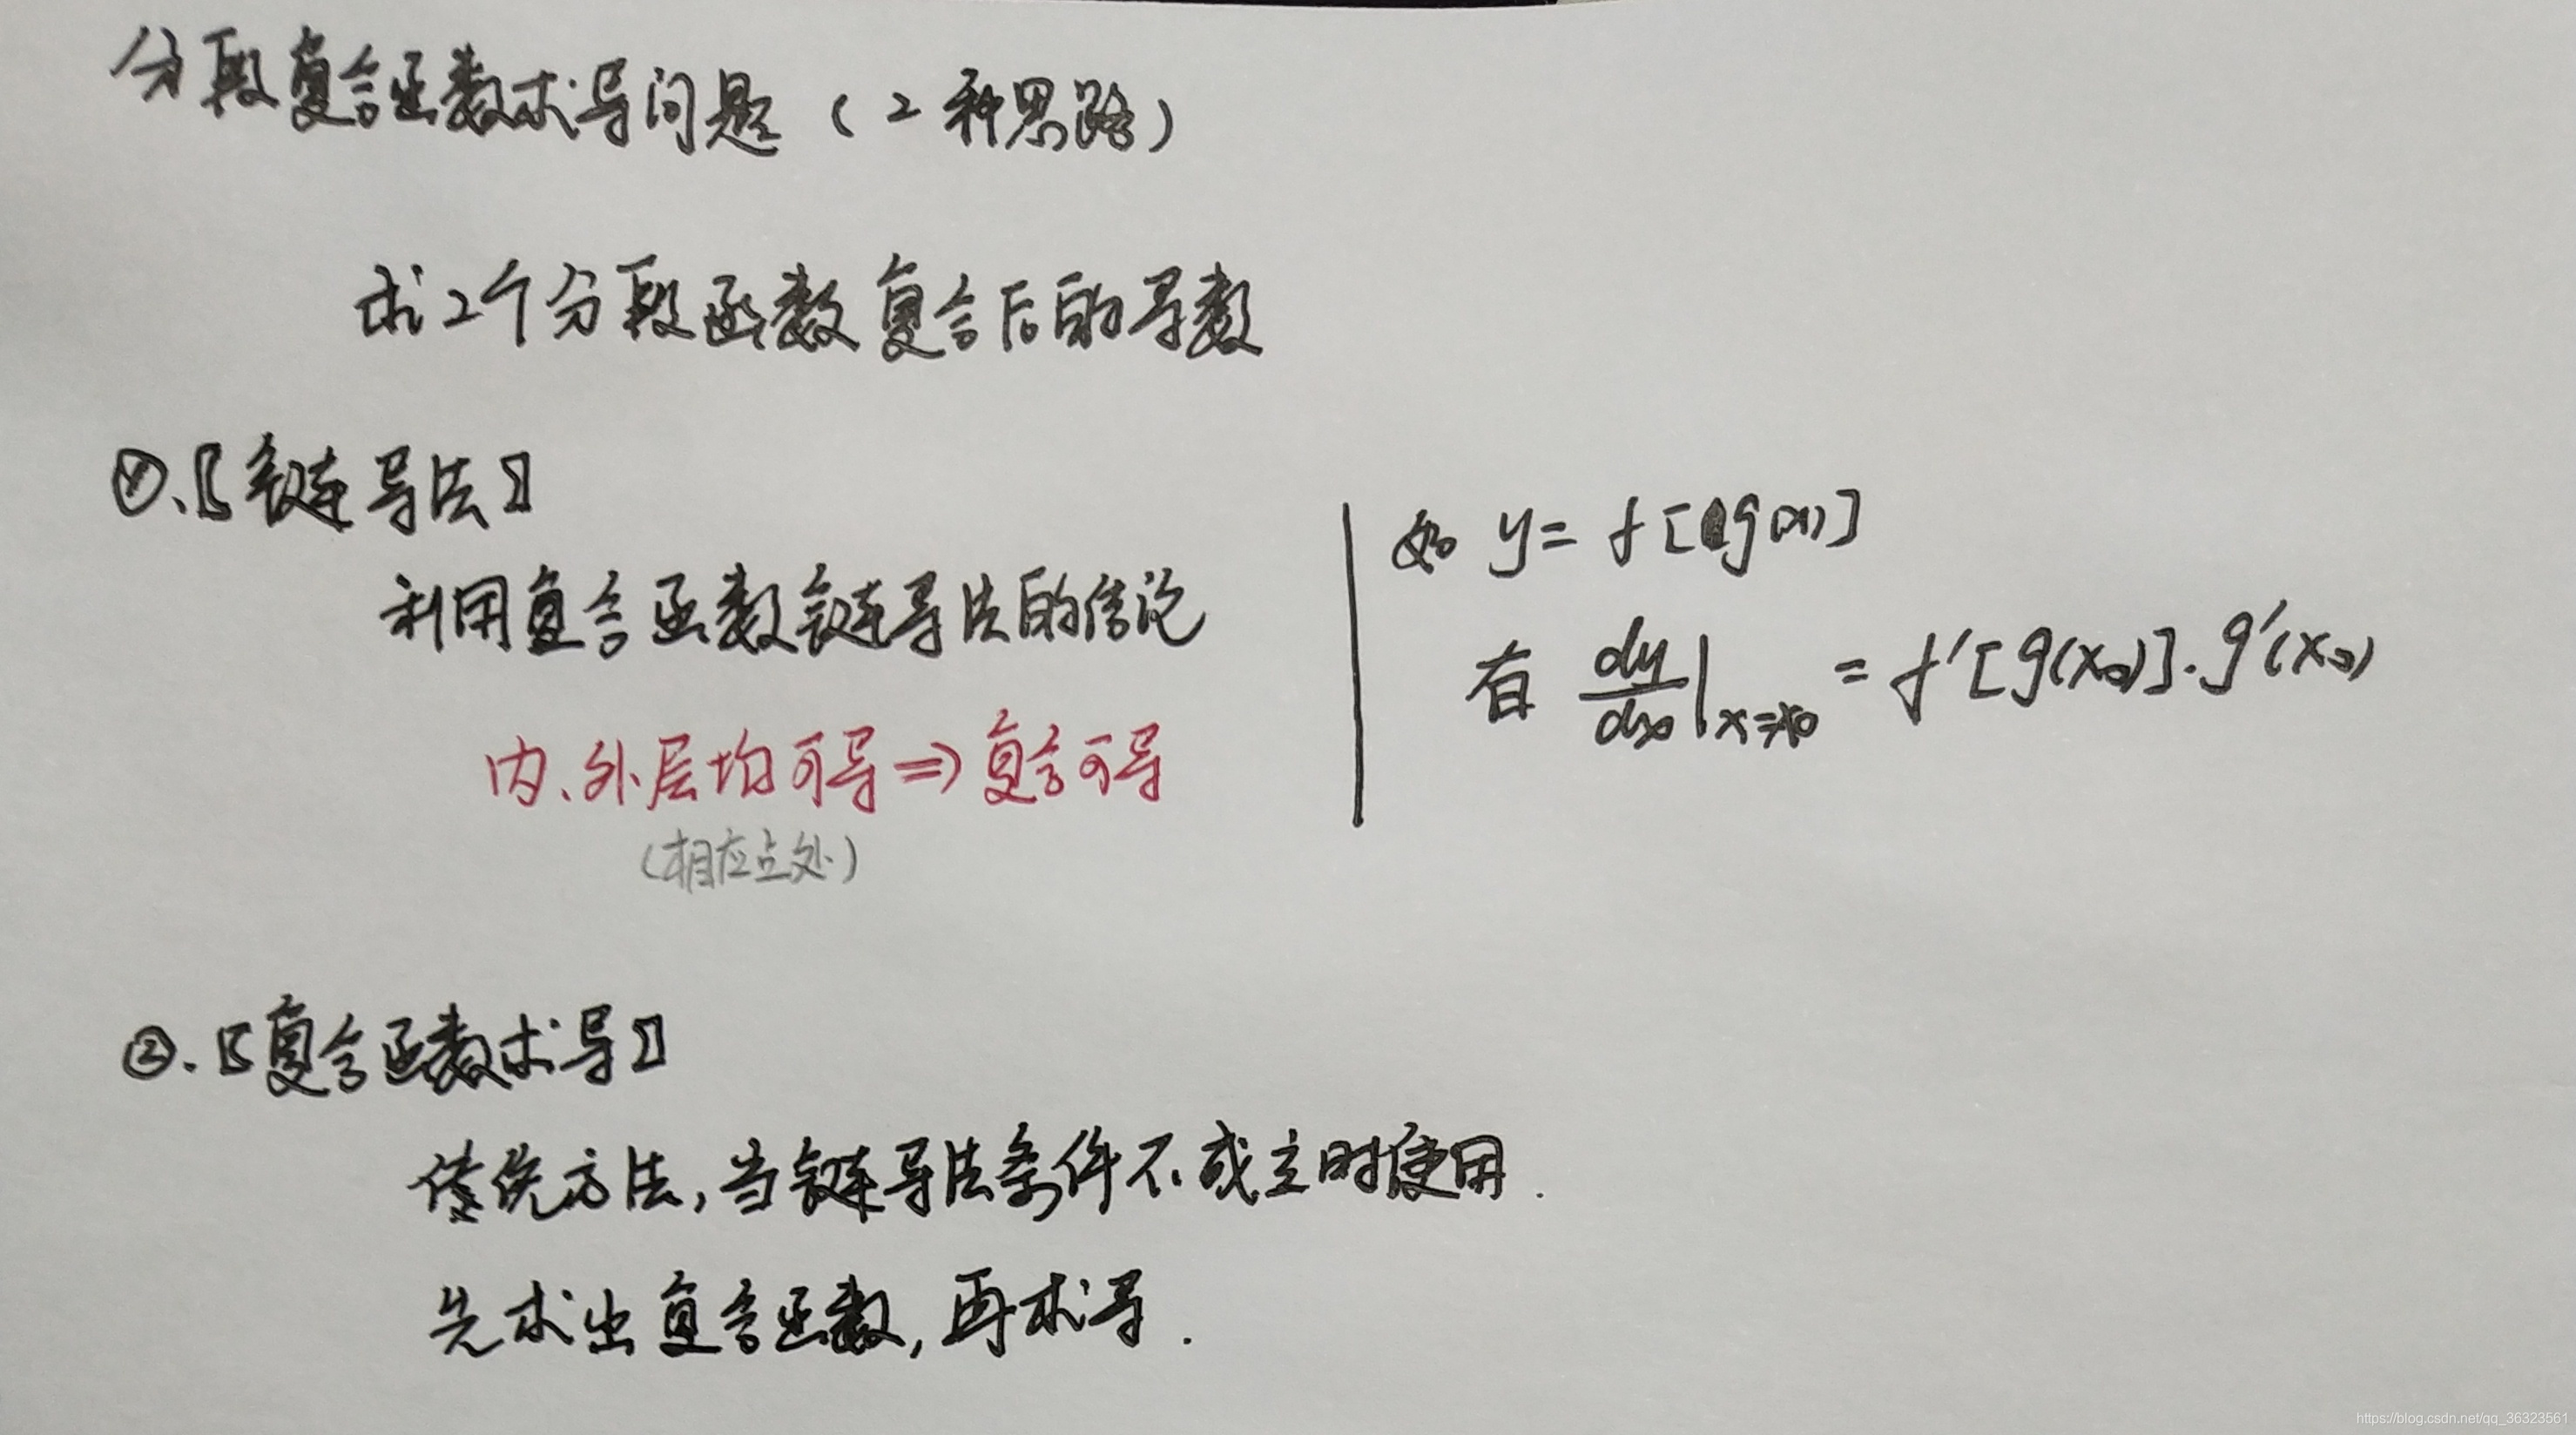 分段复合函数求导问题（2种思路）
求2个分段函数复合后的导数
①.〖链导法〗
利用复合函数链导法的结论
内、外层均可导⇒复合可导
（相应点处）
如 y = f[g(x)]
有 dy/dx|x=x0 = f'[g(x0)]·g'(x0)
②.〖复合函数求导〗
传统方法，当链导法条件不成立时使用.
先求出复合函数，再求导.
https://blog.csdn.net/qq_36323561